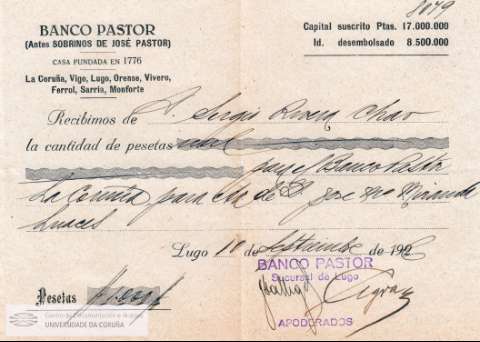 8079
BANCO PASTOR
(Antes SOBRINOS DE JOSÉ PASTOR)
CASA FUNDADA EN 1776
La Coruña, Vigo, Lugo, Orense, Vivero,
Ferrol, Sarria, Monforte
Capital suscrito Ptas. 17.000.000
Id. desembolsado 8.500.000
Recibimos de D. Sergio Rivera Chao
la cantidad de pesetas mil
para el Banco Pastor
La Coruña para cta de D. José Mª Miranda
Luaces
Lugo 10 de Septiembre de 192
BANCO PASTOR
Sucursal de Lugo
APODERADOS
Pesetas
Centro de Documentación e Arquivo
UNIVERSIDADE DA CORUÑA